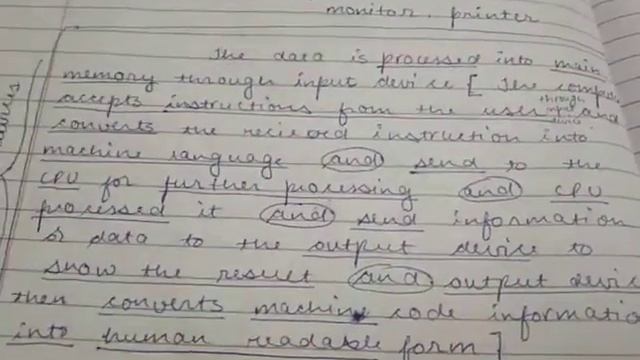 monitor. printer
The data is processed into main
memory through input device [ The
accepts instructions from the user through input device and
converts the recieved instruction into
machine language and send to the
CPU for further processing and CPU
processed it and send information
or data to the output device to
show the result and output device
then converts machine code informatio
into human readable form ]